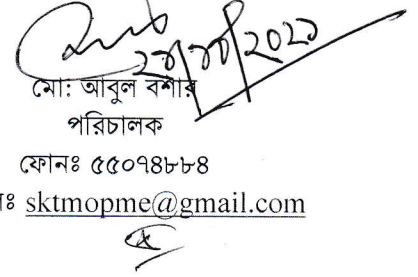 মো: আবুল বশার
পরিচালক
ফোনঃ ৫৫০৭৪৮৮৪
নঃ sktmopme@gmail.com